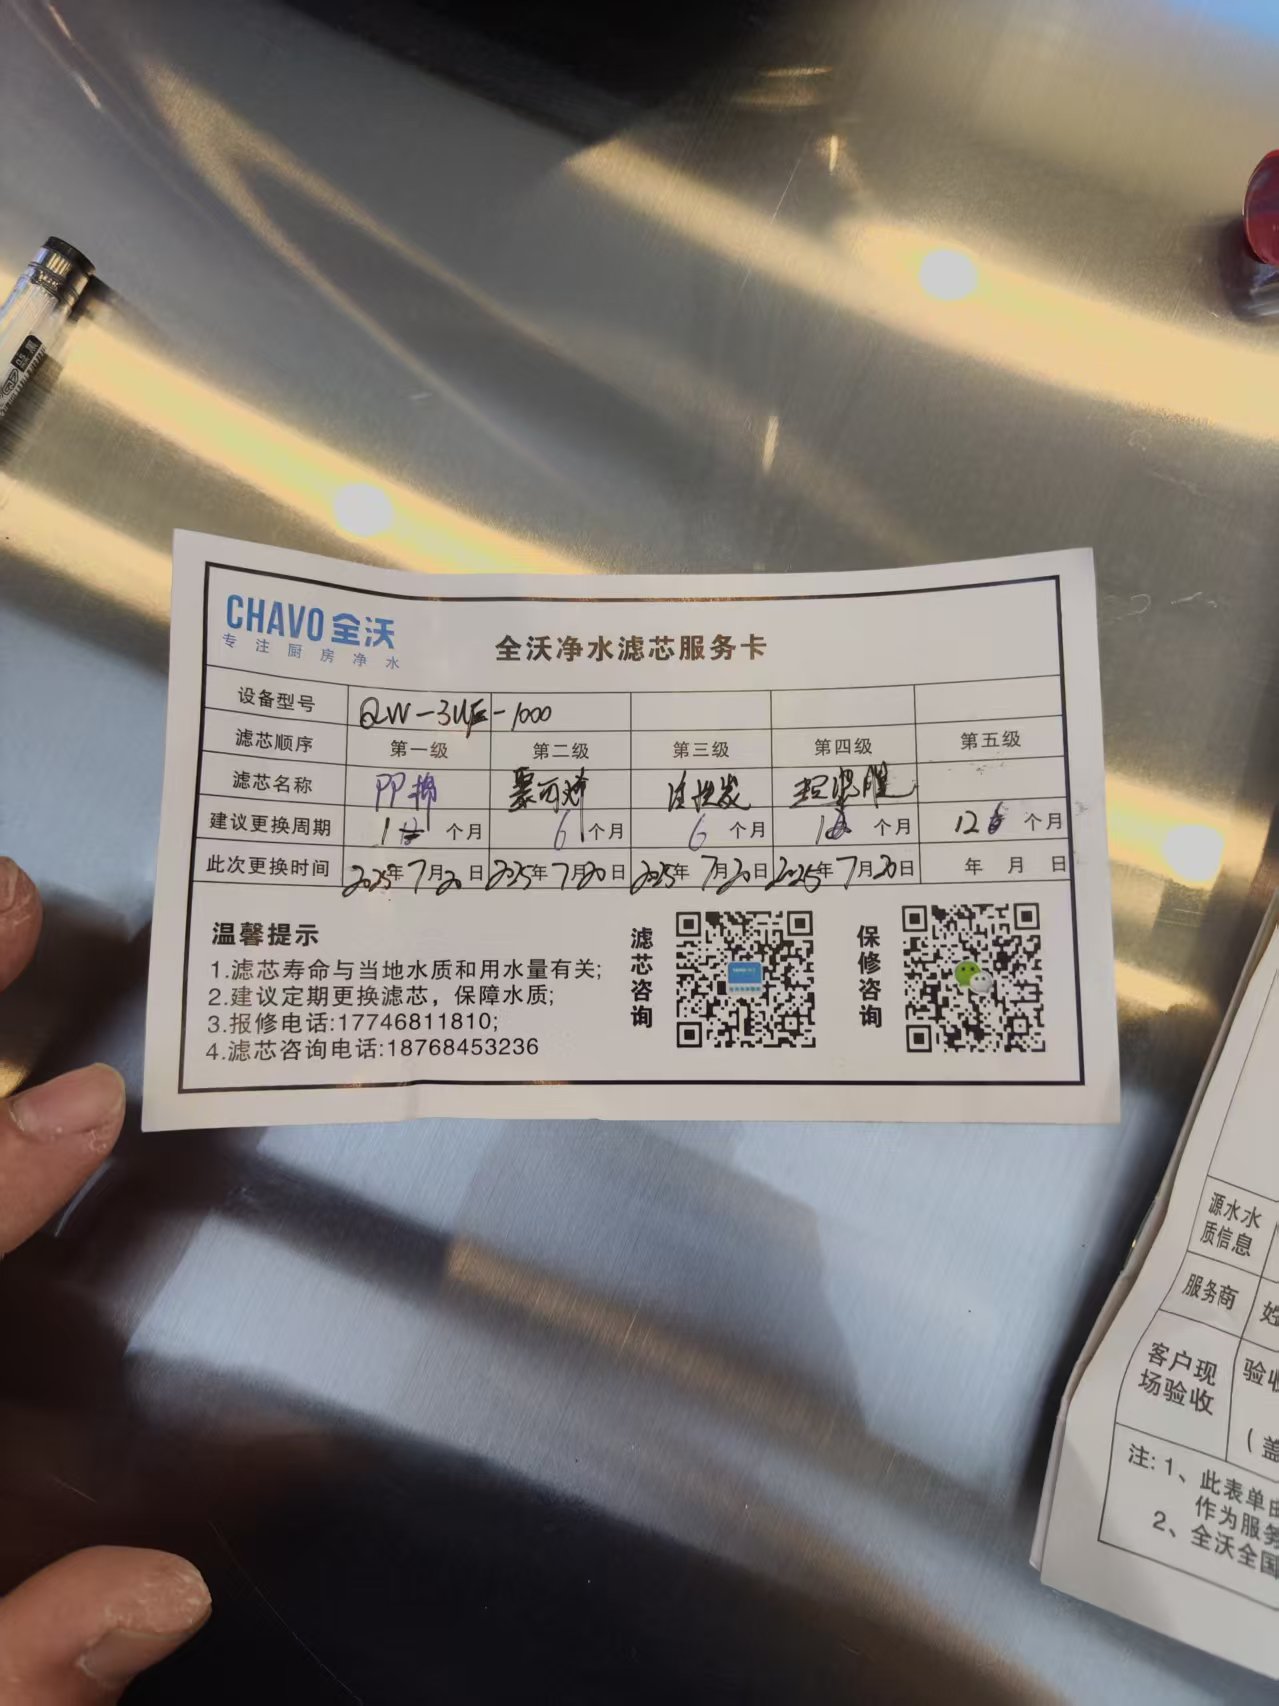 CHAVO 全沃
专注厨房净水
全沃净水滤芯服务卡
设备型号 QW-3UF-1000
滤芯顺序 第一级 第二级 第三级 第四级 第五级
滤芯名称 PP棉 活性炭 超滤膜
建议更换周期 1 个月 6 个月 6 个月 个月 12 个月
此次更换时间 2025年7月20日 2025年7月20日 2025年7月20日 2025年7月20日 年 月 日
温馨提示
1.滤芯寿命与当地水质和用水量有关;
2.建议定期更换滤芯，保障水质;
3.报修电话:17746811810;
4.滤芯咨询电话:18768453236
滤芯咨询
保修咨询
源水水
质信息
服务商
客户现
场验收
验收
(盖
注: 1、此表单由
作为服务
2、全沃全国
0.5 黑